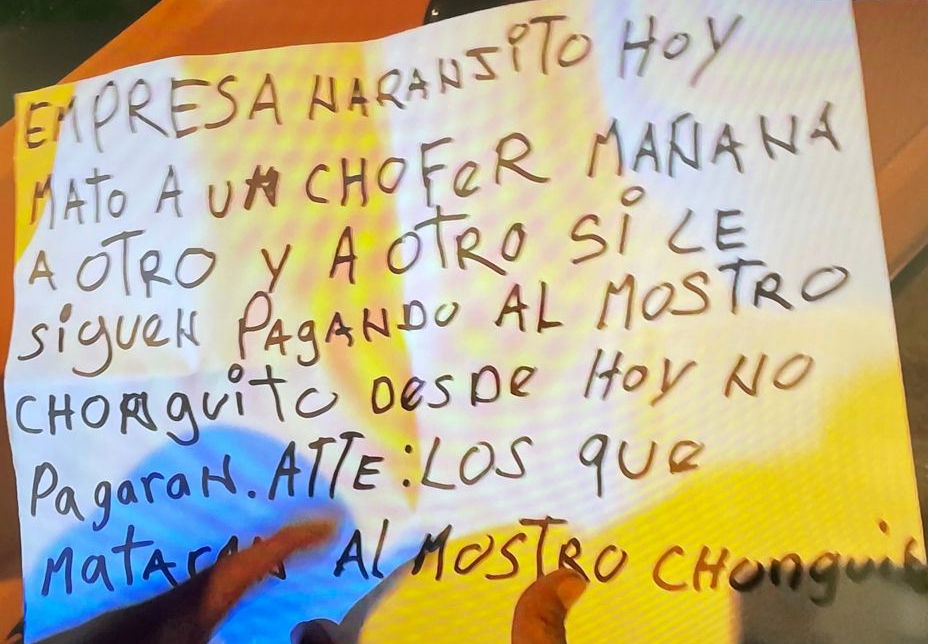 EMPRESA NARANJITO HOY
MATO A UN CHOFER MAÑANA
A OTRO Y A OTRO SI LE
SIGUEN PAGANDO AL MOSTRO
CHONGUITO DESDE HOY NO
PAGARAN. ATTE: LOS QUE
MATARAN AL MOSTRO CHONGUI